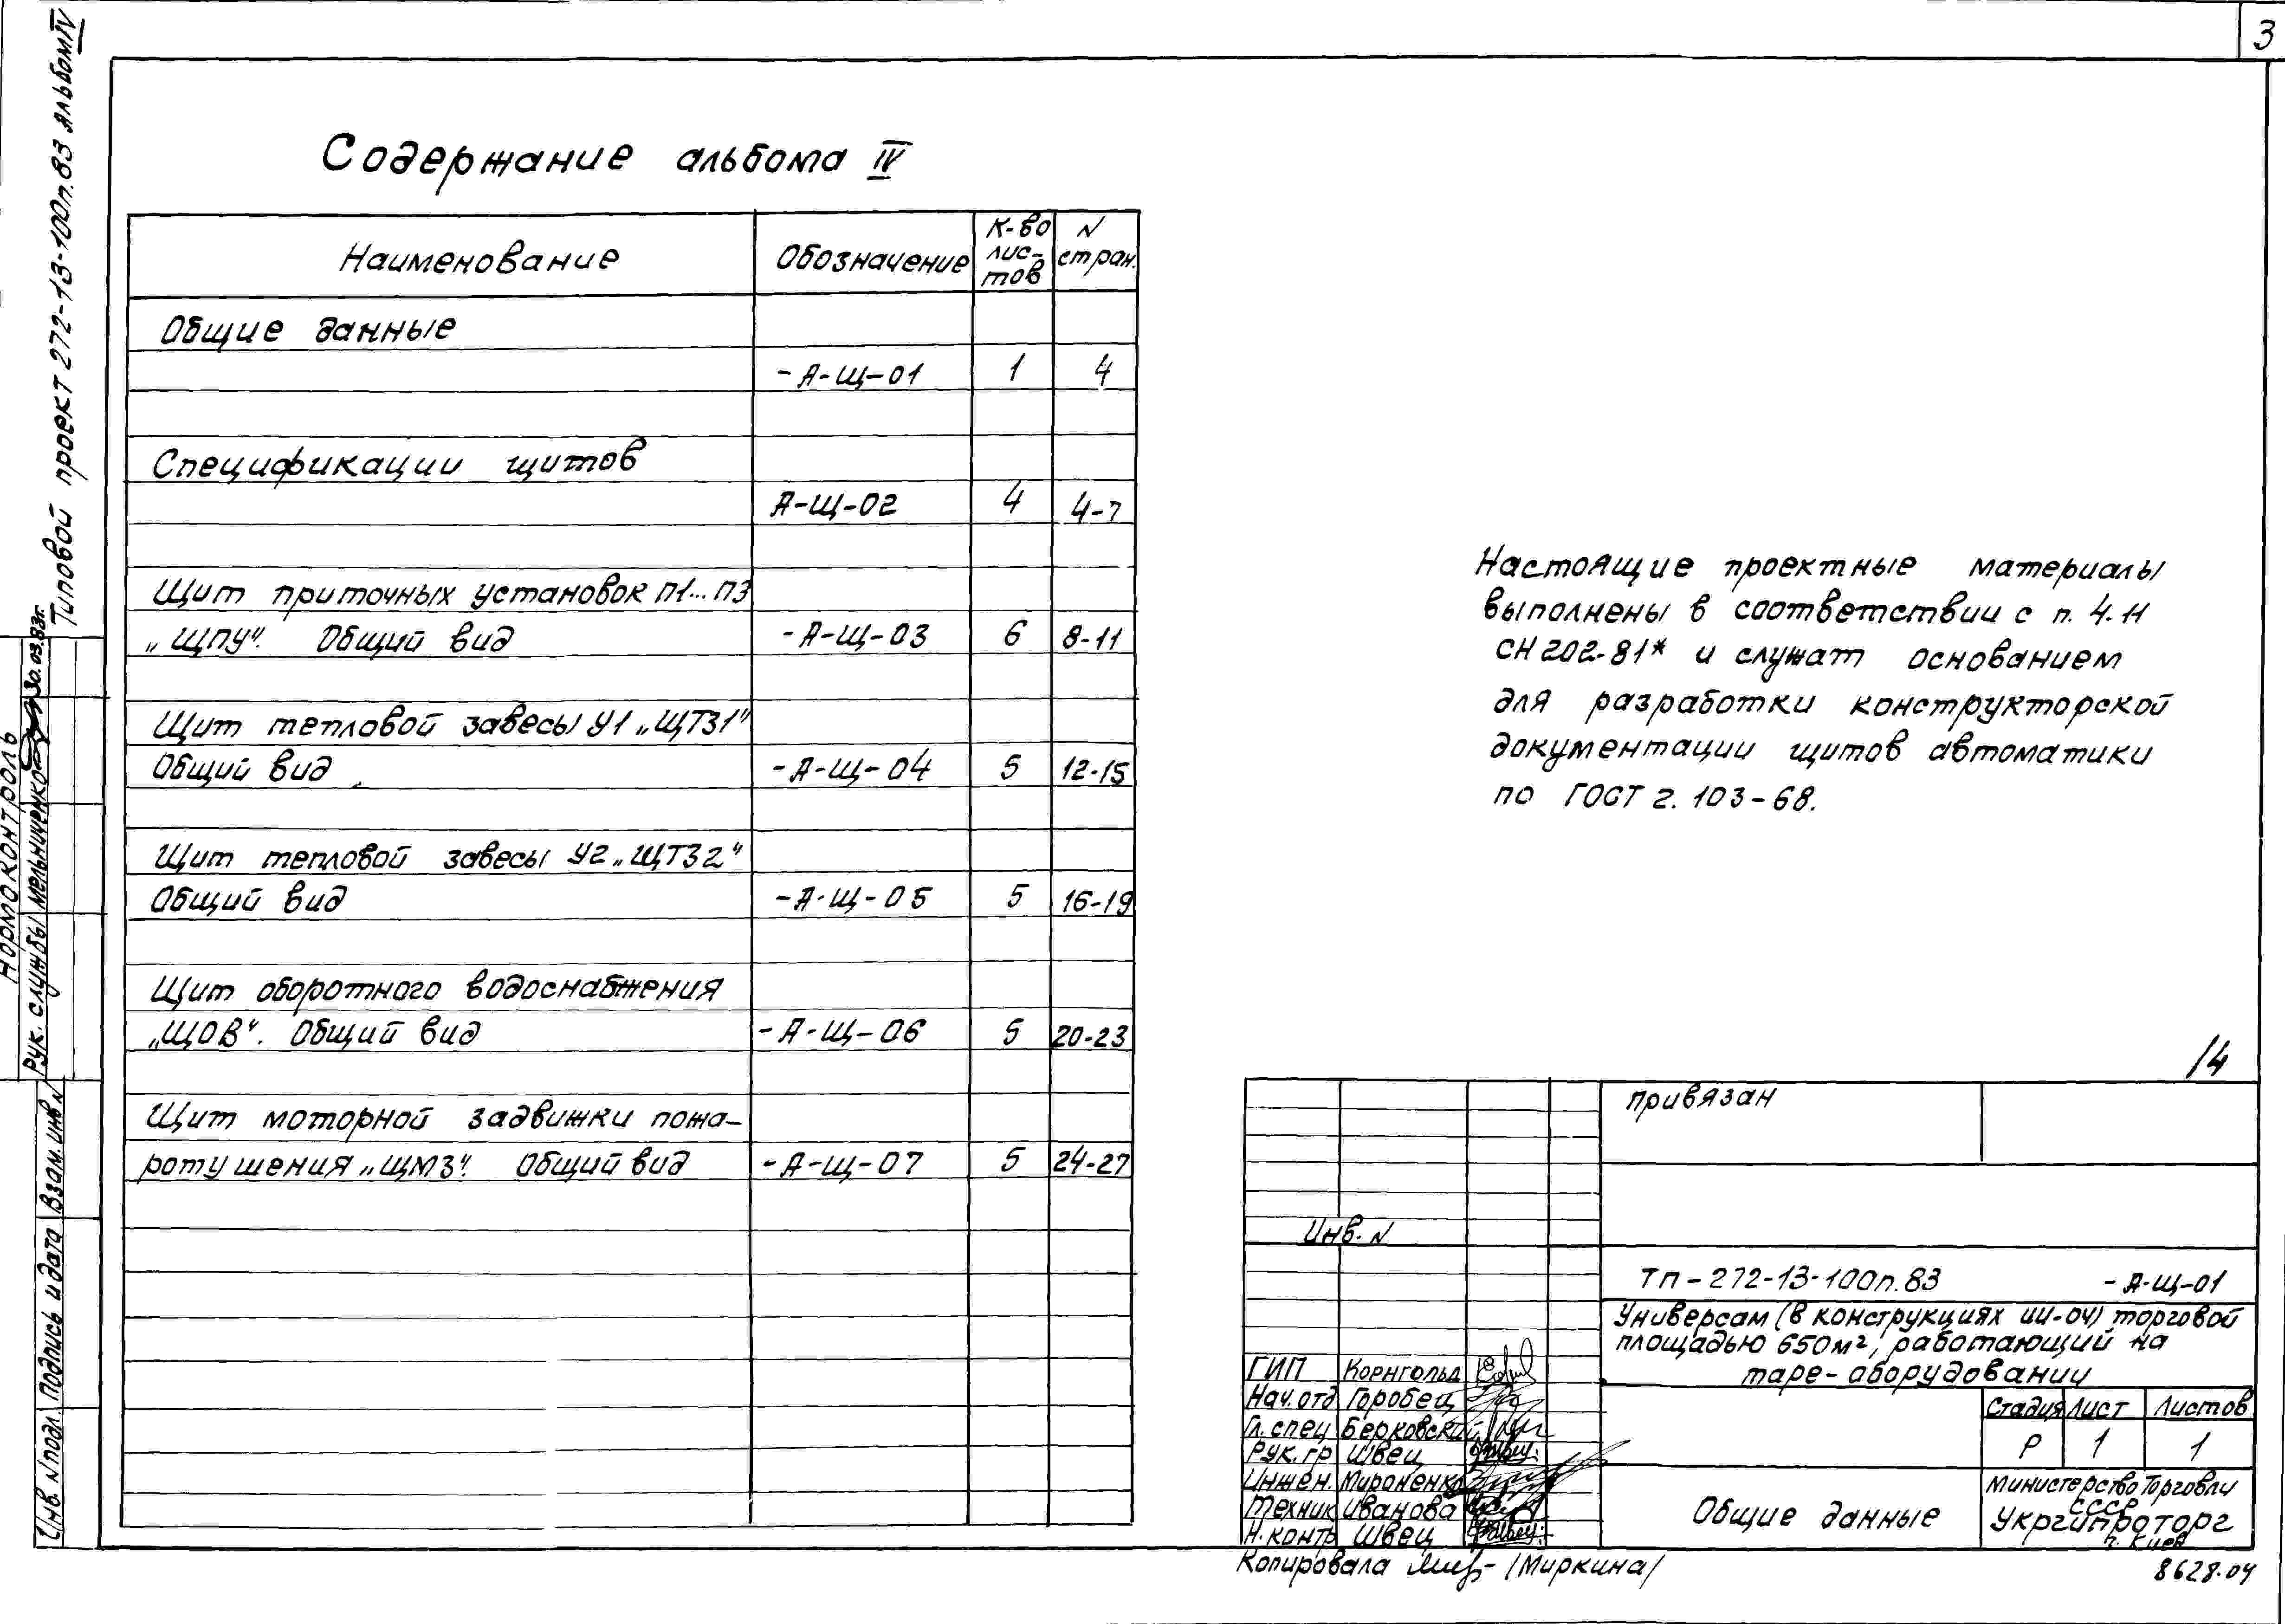 3
Типовой проект 272-13-100п.83 альбом IV
Содержание альбома IV
Наименование Обозначение К-во лис-тов N стран.
Общие данные
-А-Щ-01 1 4
Спецификации щитов
А-Щ-02 4 4-7
Щит приточных установок П1...П3
„ЩПУ“. Общий вид -А-Щ-03 6 8-11
Щит тепловой завесы У1 „ЩТЗ1“
Общий вид -А-Щ-04 5 12-15
Щит тепловой завесы У2 „ЩТЗ2“
Общий вид -А-Щ-05 5 16-19
Щит оборотного водоснабжения
„ЩОВ“. Общий вид -А-Щ-06 5 20-23
Щит моторной задвижки пожа-
ротушения „ЩМЗ“. Общий вид -А-Щ-07 5 24-27
Настоящие проектные материалы
выполнены в соответствии с п. 4.11
СН 202-81* и служат основанием
для разработки конструкторской
документации щитов автоматики
по ГОСТ 2.103-68.
14
привязан
Инв. N
ТП-272-13-100п.83 -А-Щ-01
Универсам (в конструкциях ИИ-04) торговой
площадью 650м², работающий на
таре-оборудовании
ГИП Корнгольд
Нач.отд Горобец
Гл.спец Берковский
Рук.гр Швец
Инжен. Мироненко
Техник Иванова
Н.контр Швец
Стадия Лист Листов
Р 1 1
Общие данные
Министерство Торговли
СССР
Укргипроторг
г. Киев
Копировала /Миркина/
8628-04
Нормоконтроль
Рук. службы Мельниченко 30.03.83г.
Инв. N подл. Подпись и дата Взам. инв N